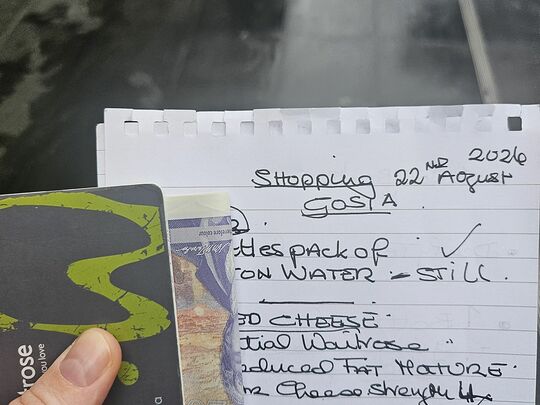 2026
Shopping 22ND August
GOSIA
ttles pack of ✓
TON WATER - STILL.
ED CHEESE
tial Waitrose "
educed FAT MATURE.
Cheese strength 4
trose
you love